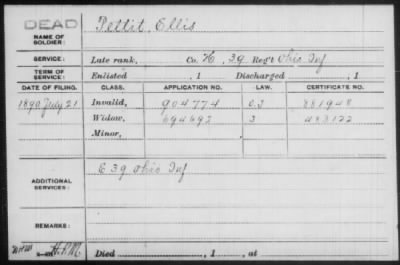 DEAD
NAME OF SOLDIER: Pettit, Ellis
SERVICE: Late rank, Co. K, 39 Reg't Ohio Inf
TERM OF SERVICE: Enlisted , 1 Discharged , 1
DATE OF FILING. CLASS. APPLICATION NO. LAW. CERTIFICATE NO.
1890 July 21 Invalid, 904774 881948
Widow, 694692 3 483122
Minor,
ADDITIONAL SERVICES: E 39 Ohio Inf
REMARKS:
Died , 1 , at